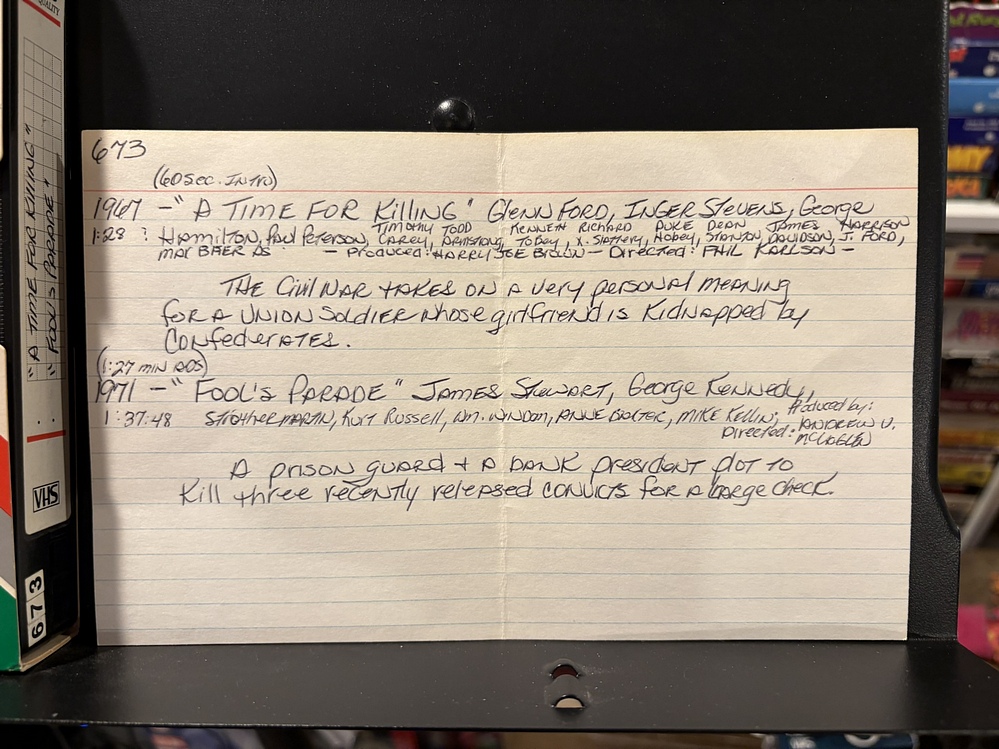 QUALITY
"A TIME FOR KILLING"
"FOOL'S PARADE"
VHS
673
673
(60 SEC. INTRO)
1967 - "A TIME FOR KILLING" GLENN FORD, INGER STEVENS, George
TIMOTHY TODD KENNETH RICHARD DUKE DEAN JAMES HARRISON
1:28 : HAMILTON, PAUL PETERSON, CAREY, ARMSTRONG, TOBEY, X. SLATTERY, HOBEY, STANTON, DAVIDSON, J. FORD,
MAX BAER AS - Produced: HARRY JOE BROWN - Directed: PHIL KARLSON -
THE CIVIL WAR TAKES ON A very personal meaning
FOR A UNION SOLDIER whose girlfriend is Kidnapped by
CONFEDERATES.
(1:27 MIN ADS)
1971 - "FOOL'S PARADE" JAMES STEWART, George Kennedy,
1:37:48 STROTHER MARTIN, Kurt Russell, WM. WINDOM, ANNE BAXTER, MIKE KELLIN; Produced by:
Directed: ANDREW V.
McLAGLEN
A prison guard + A BANK president plot to
Kill three recently released CONVICTS for A large check.